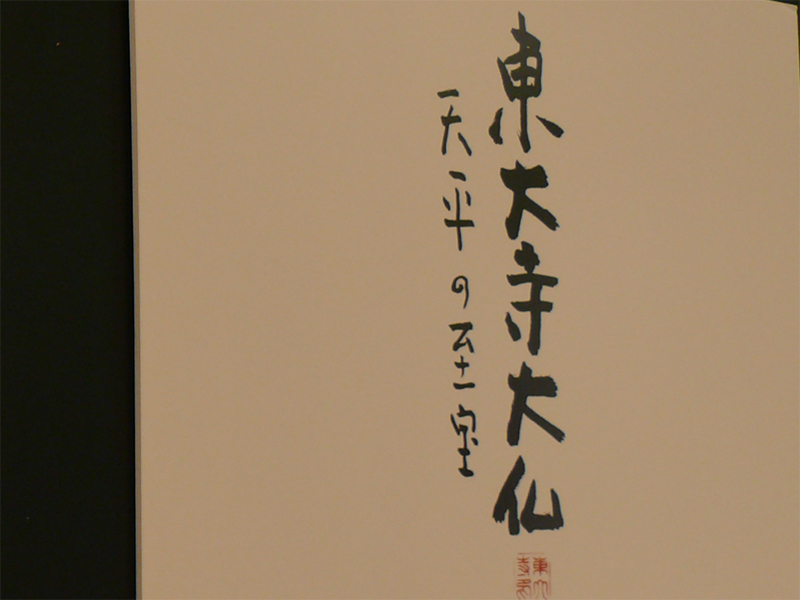 東大寺大仏
天平の至宝